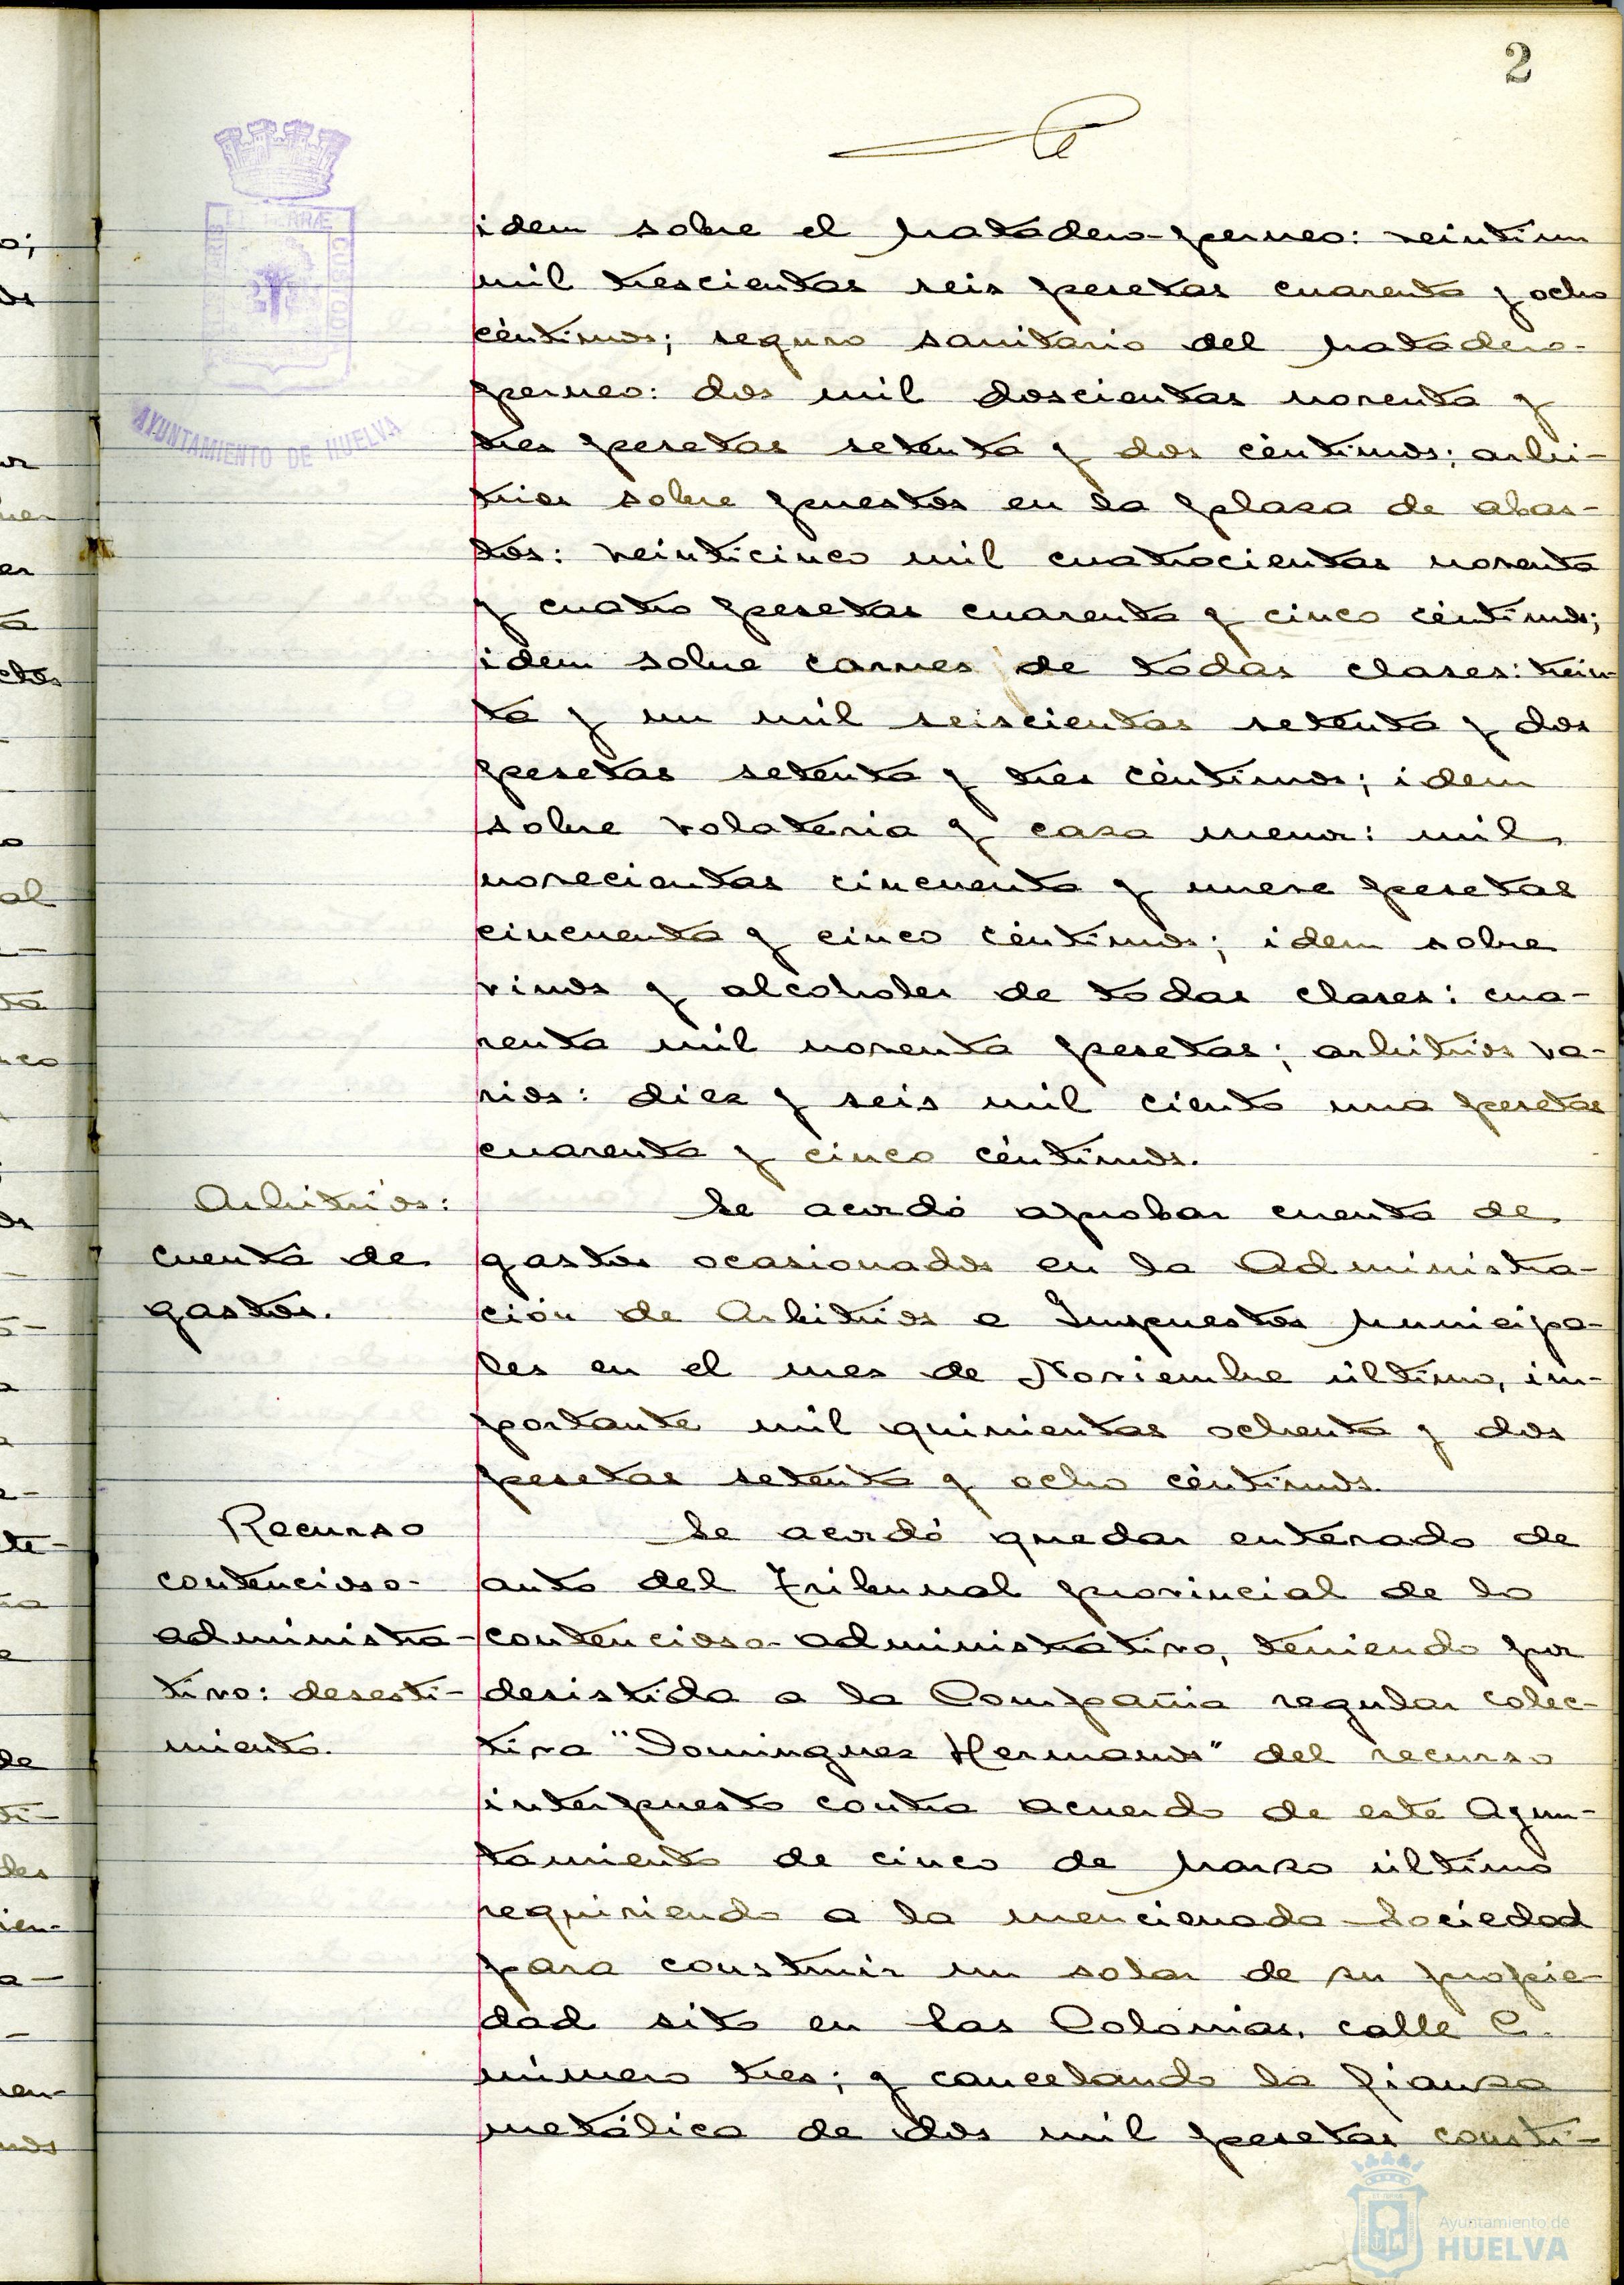 2
idem sobre el Matadero-perneo: veintiun
mil trescientas seis pesetas cuarenta y ocho
céntimos; seguro sanitario del Matadero-
perneo: dos mil doscientas noventa y
tres pesetas setenta y dos céntimos; arbi-
trios sobre puestos en la plaza de abas-
tos: veinticinco mil cuatrocientas noventa
y cuatro pesetas cuarenta y cinco céntimos;
idem sobre carnes de todas clases: trein-
ta y un mil seiscientas setenta y dos
pesetas setenta y tres céntimos; idem
sobre volateria y caza menor: mil
novecientas cincuenta y nueve pesetas
cincuenta y cinco céntimos; idem sobre
vinos y alcoholes de todas clases: cua-
renta mil noventa pesetas; arbitrios va-
rios: diez y seis mil ciento una pesetas
cuarenta y cinco céntimos.
Arbitrios:
cuenta de
gastos.
Se acordó aprobar cuenta de
gastos ocasionados en la Administra-
ción de Arbitrios e Impuestos Municipa-
les en el mes de Noviembre último, im-
portante mil quinientas ochenta y dos
pesetas setenta y ocho céntimos.
Recurso
contencioso-
administra-
tivo: desesti-
miento.
Se acordó quedar enterado de
auto del Tribunal provincial de lo
contencioso-administrativo, teniendo por
desistida a la Compañia regular colec-
tiva "Dominguez Hermanos" del recurso
interpuesto contra acuerdo de este Ayun-
tamiento de cinco de Marzo último
requiriendo a la mencionada Sociedad
para construir un solar de su propie-
dad sito en las Colonias, calle C.
número tres; y cancelando la fianza
metálica de dos mil pesetas consti-
AYUNTAMIENTO DE HUELVA
Ayuntamiento de
HUELVA